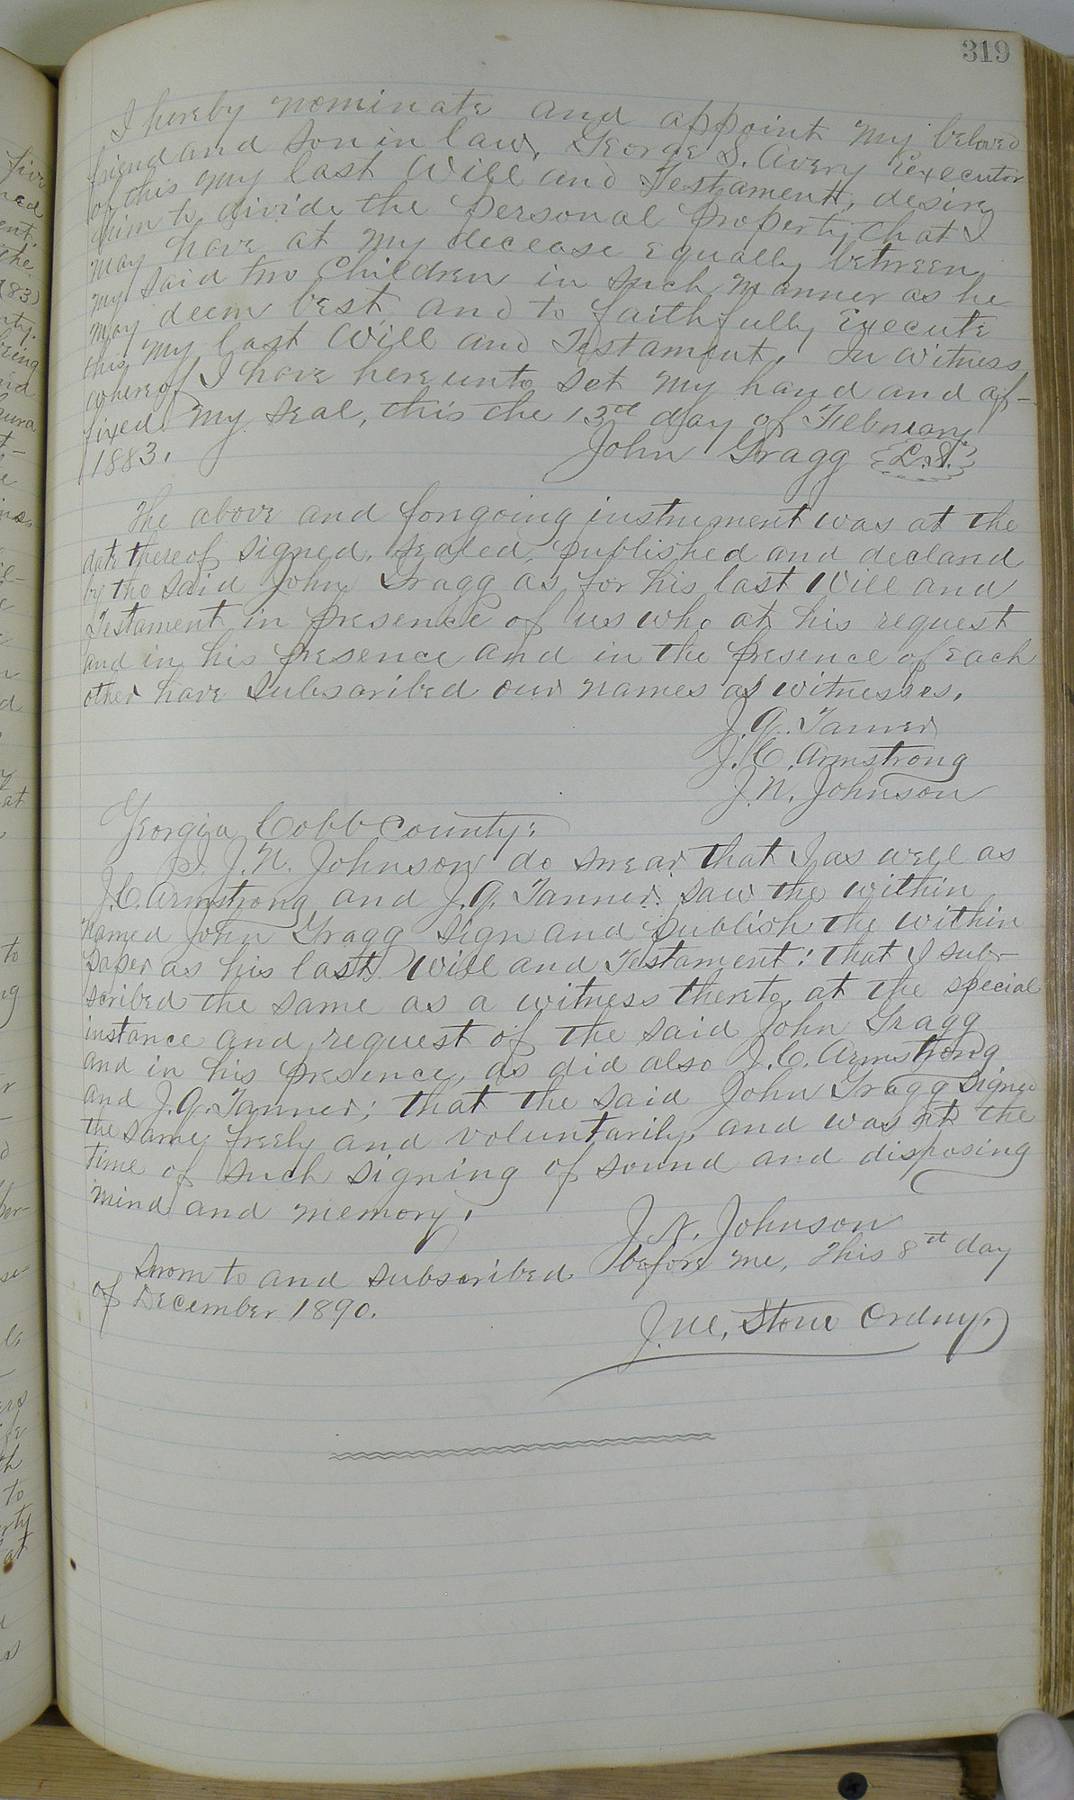 319
I hereby nominate and appoint my beloved
friend and son in law, George S. Avery Executor
of this my last Will and Testament, desire
him to divide the personal property that I
may have at my decease equally between
my said two Children in such manner as he
may deem best and to faithfully Execute
this my last Will and Testament. In witness
whereof I have hereunto set my hand and af-
fixed my seal, this the 13th day of February
1883. John Gragg L.S.
The above and foregoing instrument was at the
date thereof signed, sealed, published and declared
by the said John Gragg as for his last Will and
Testament in presence of us who at his request
and in his presence and in the presence of each
other have subscribed our names as witnesses.
J. G. Tanner
J. C. Armstrong
J. N. Johnson
Georgia Cobb County:
I. J. N. Johnson do swear that I as well as
J. C. Armstrong and J. G. Tanner saw the within
named John Gragg sign and publish the within
paper as his last Will and Testament: that I sub-
scribed the same as a witness thereto at the special
instance and request of the said John Gragg
and in his presence, as did also J. C. Armstrong
and J. G. Tanner; that the said John Gragg signed
the same freely and voluntarily, and was at the
time of such signing of sound and disposing
mind and memory.
J. N. Johnson
Sworn to and subscribed before me, This 8th day
of December 1890.
J. M. Stone Ordny.